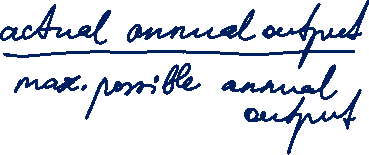 actual annual output
max. possible annual
output